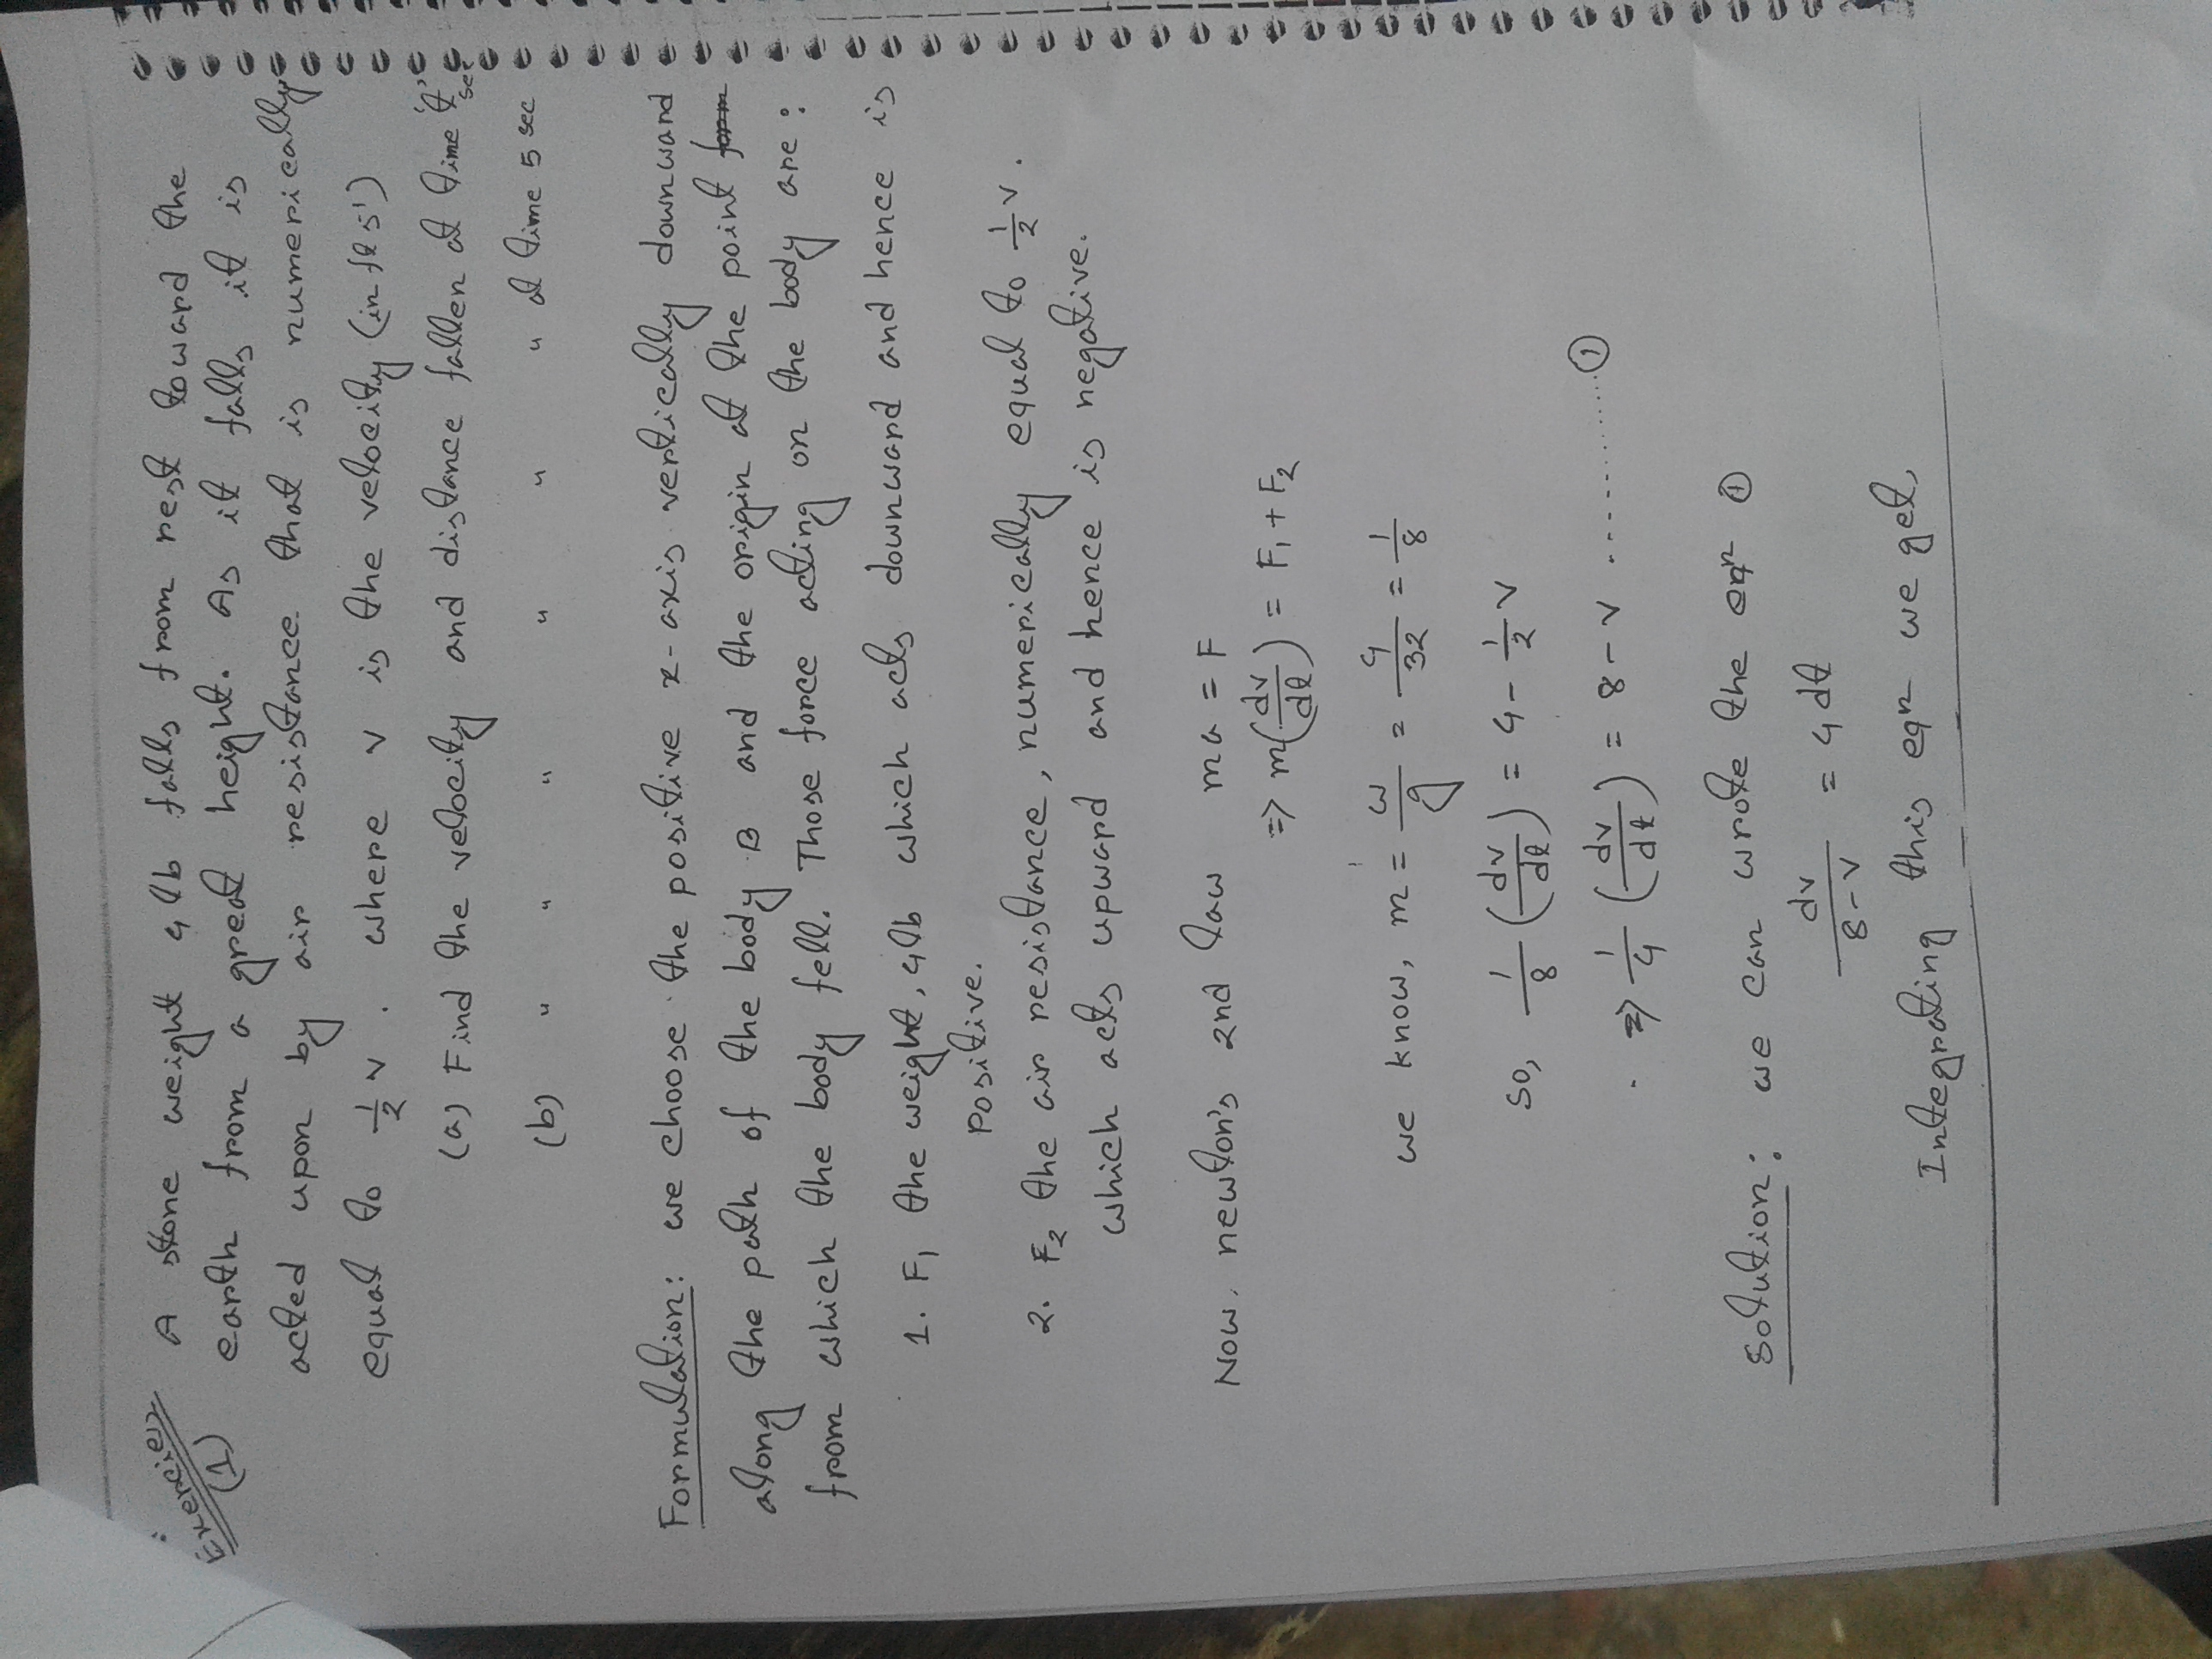 Exercies
(1)
A stone weight 4 lb falls from rest toward the
earth from a great height. As it falls it is
acted upon by air resistance that is numerically
equal to 1/2 v . where v is the velocity (in ft s⁻¹)
(a) Find the velocity and distance fallen at time 't' sec
(b) " " " " " " at time 5 sec
Formulation: we choose the positive x-axis vertically downward
along the path of the body B and the origin at the point form
from which the body fell. Those force acting on the body are :
1. F₁ the weight, 4 lb which acts downward and hence is
positive.
2. F₂ the air resistance, numerically equal to 1/2 v.
which acts upward and hence is negative.
Now, newton's 2nd law ma = F
=> m(dv/dt) = F₁ + F₂
we know, m = w/g = 4/32 = 1/8
so, 1/8 (dv/dt) = 4 - 1/2 v
=> 1/4 (dv/dt) = 8 - v ............ ①
Solution: we can wrote the eqⁿ ①
dv/(8-v) = 4 dt
Integrating this eqⁿ we get,